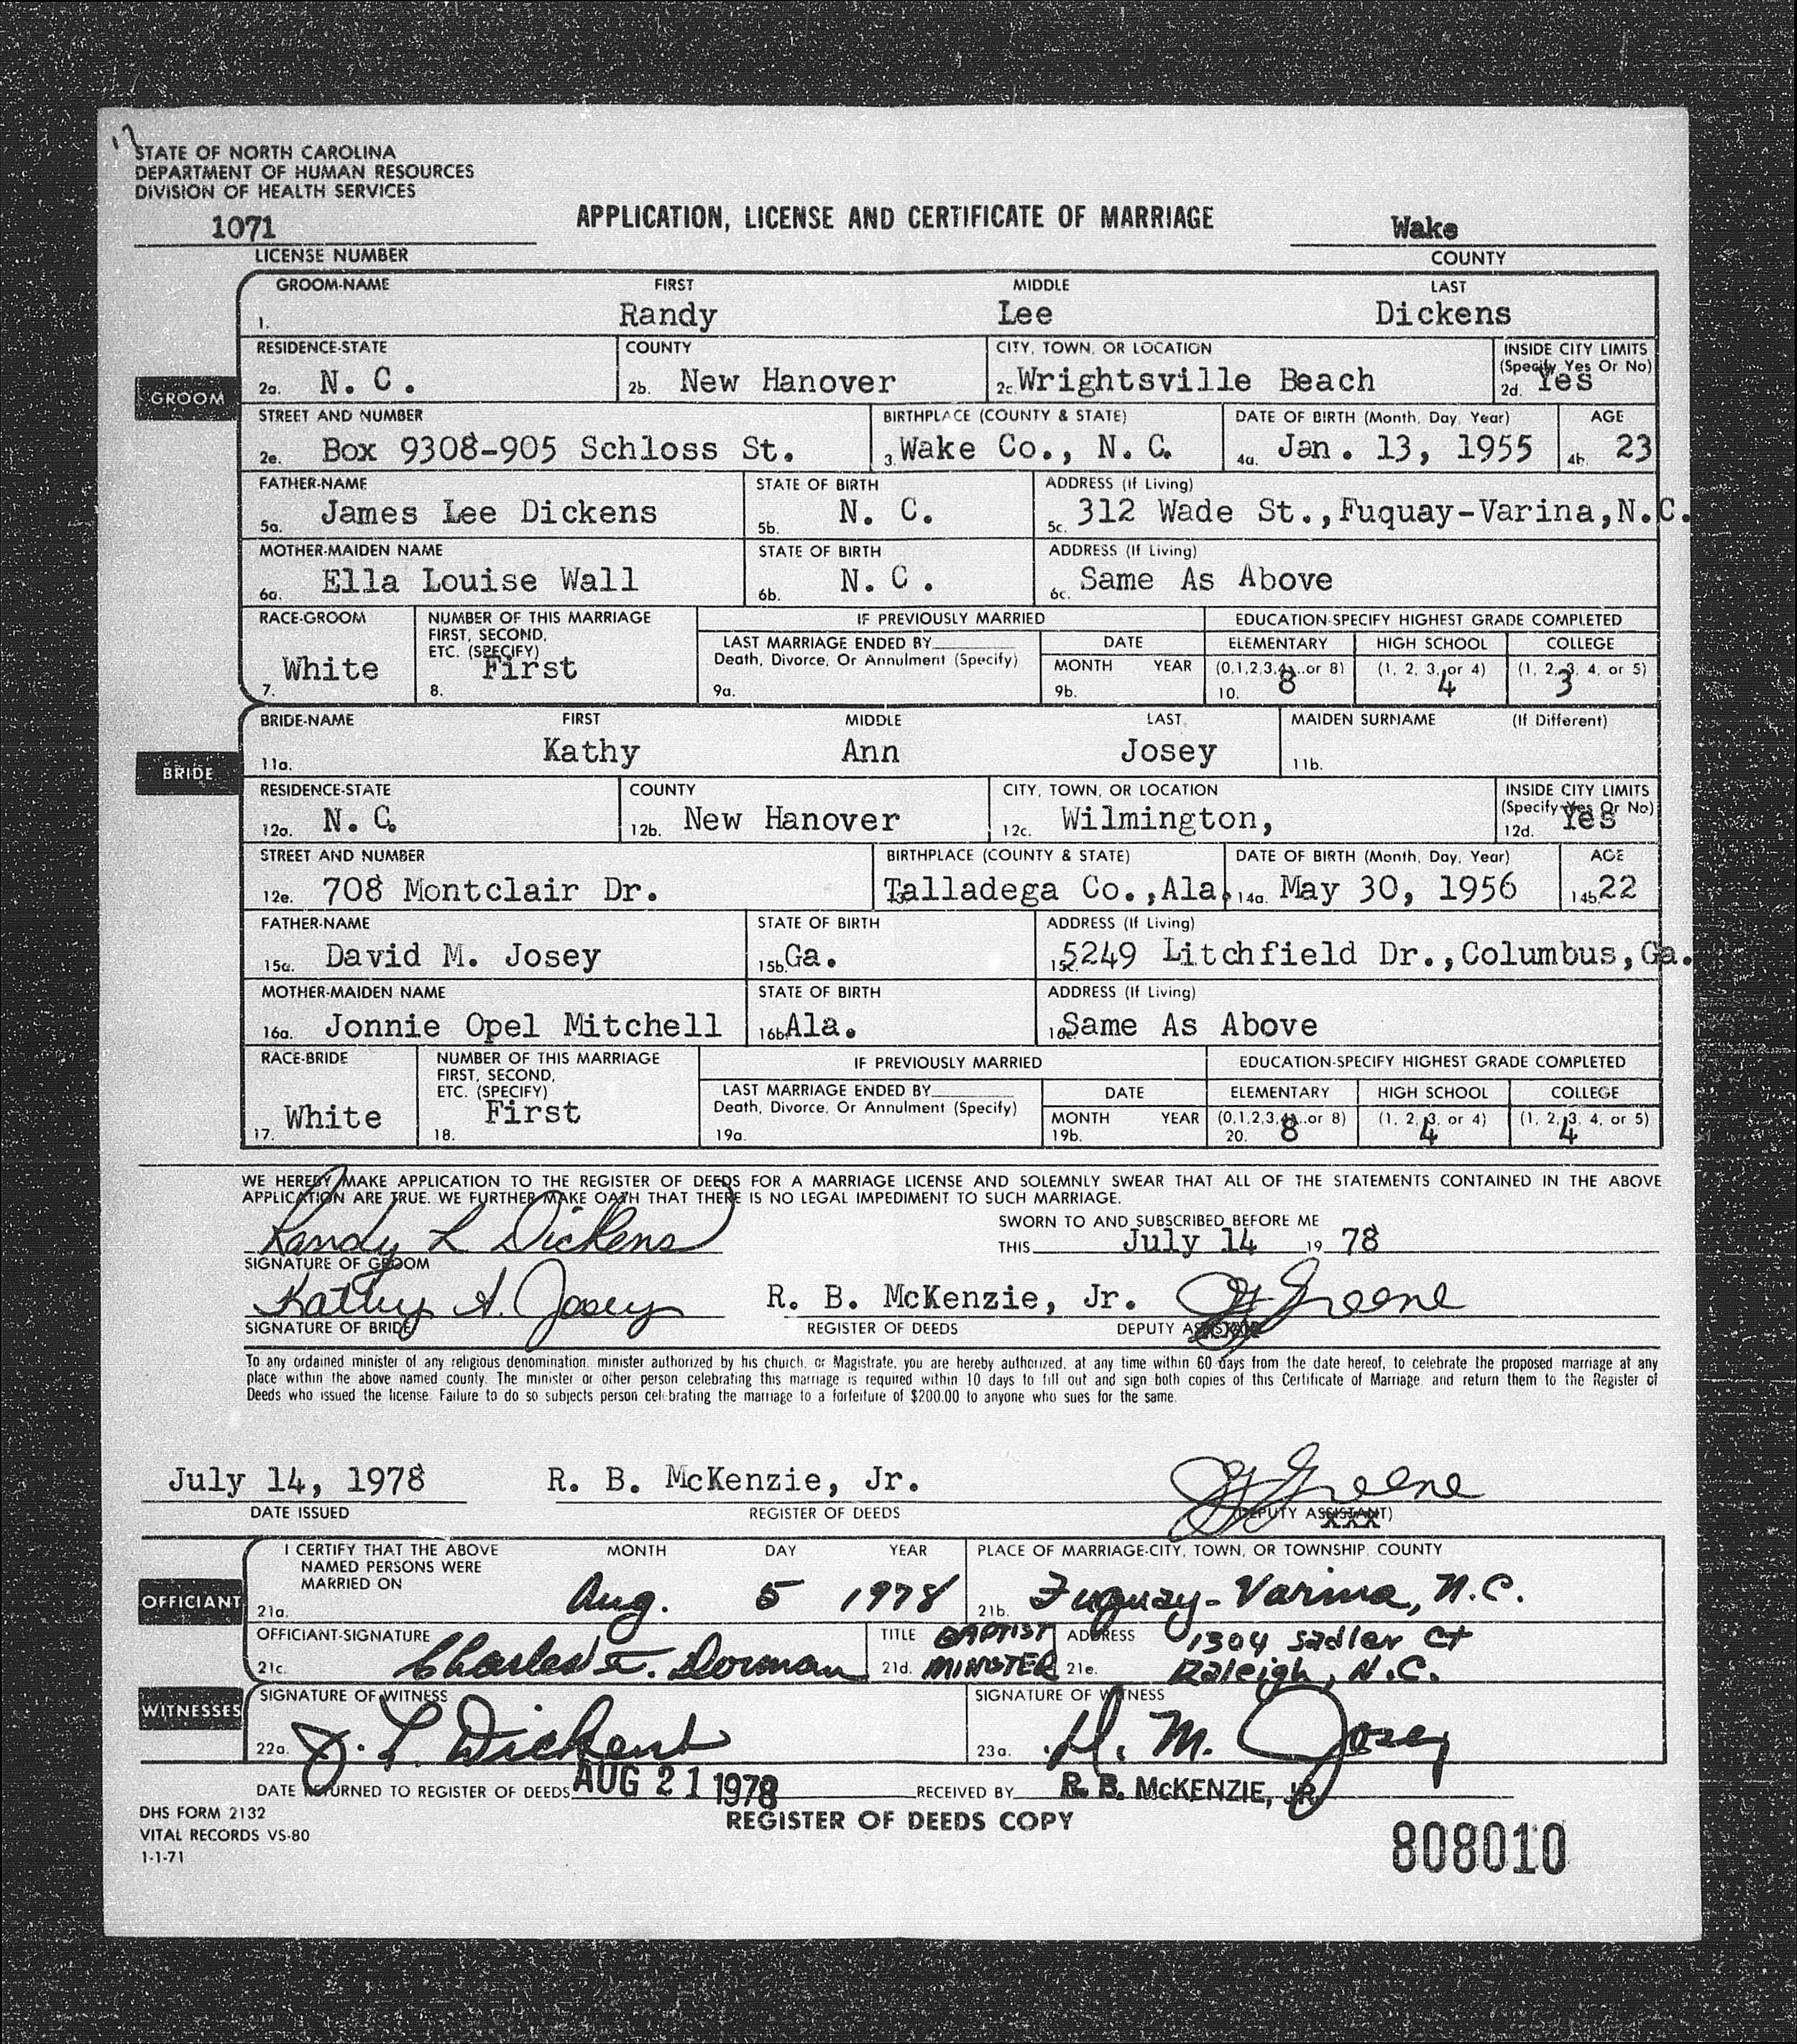 STATE OF NORTH CAROLINA
DEPARTMENT OF HUMAN RESOURCES
DIVISION OF HEALTH SERVICES
1071
LICENSE NUMBER
APPLICATION, LICENSE AND CERTIFICATE OF MARRIAGE
Wake
COUNTY
GROOM-NAME FIRST MIDDLE LAST
1. Randy Lee Dickens
GROOM
RESIDENCE-STATE COUNTY CITY, TOWN, OR LOCATION INSIDE CITY LIMITS (Specify Yes Or No)
2a. N. C. 2b. New Hanover 2c. Wrightsville Beach 2d. Yes
STREET AND NUMBER BIRTHPLACE (COUNTY & STATE) DATE OF BIRTH (Month, Day, Year) AGE
2e. Box 9308-905 Schloss St. 3. Wake Co., N. C. 4a. Jan. 13, 1955 4b. 23
FATHER-NAME STATE OF BIRTH ADDRESS (If Living)
5a. James Lee Dickens 5b. N. C. 5c. 312 Wade St.,Fuquay-Varina,N.C.
MOTHER-MAIDEN NAME STATE OF BIRTH ADDRESS (If Living)
6a. Ella Louise Wall 6b. N. C. 6c. Same As Above
RACE-GROOM NUMBER OF THIS MARRIAGE FIRST, SECOND, ETC. (SPECIFY) IF PREVIOUSLY MARRIED EDUCATION-SPECIFY HIGHEST GRADE COMPLETED
LAST MARRIAGE ENDED BY DATE ELEMENTARY HIGH SCHOOL COLLEGE
Death, Divorce, Or Annulment (Specify) MONTH YEAR (0,1,2,3,4,...or 8) (1, 2, 3, or 4) (1, 2, 3, 4, or 5)
7. White 8. First 9a. 9b. 10. 8 4 3
BRIDE-NAME FIRST MIDDLE LAST MAIDEN SURNAME (If Different)
11a. Kathy Ann Josey 11b.
BRIDE
RESIDENCE-STATE COUNTY CITY, TOWN, OR LOCATION INSIDE CITY LIMITS (Specify Yes Or No)
12a. N. C. 12b. New Hanover 12c. Wilmington, 12d. Yes
STREET AND NUMBER BIRTHPLACE (COUNTY & STATE) DATE OF BIRTH (Month, Day, Year) AGE
12e. 708 Montclair Dr. 13. Talladega Co.,Ala. 14a. May 30, 1956 14b. 22
FATHER-NAME STATE OF BIRTH ADDRESS (If Living)
15a. David M. Josey 15b. Ga. 15c. 5249 Litchfield Dr.,Columbus,Ga.
MOTHER-MAIDEN NAME STATE OF BIRTH ADDRESS (If Living)
16a. Jonnie Opel Mitchell 16b. Ala. 16c. Same As Above
RACE-BRIDE NUMBER OF THIS MARRIAGE FIRST, SECOND, ETC. (SPECIFY) IF PREVIOUSLY MARRIED EDUCATION-SPECIFY HIGHEST GRADE COMPLETED
LAST MARRIAGE ENDED BY DATE ELEMENTARY HIGH SCHOOL COLLEGE
Death, Divorce, Or Annulment (Specify) MONTH YEAR (0,1,2,3,4,...or 8) (1, 2, 3, or 4) (1, 2, 3, 4, or 5)
17. White 18. First 19a. 19b. 20. 8 4 4
WE HEREBY MAKE APPLICATION TO THE REGISTER OF DEEDS FOR A MARRIAGE LICENSE AND SOLEMNLY SWEAR THAT ALL OF THE STATEMENTS CONTAINED IN THE ABOVE
APPLICATION ARE TRUE. WE FURTHER MAKE OATH THAT THERE IS NO LEGAL IMPEDIMENT TO SUCH MARRIAGE.
Randy L Dickens
SIGNATURE OF GROOM
SWORN TO AND SUBSCRIBED BEFORE ME
THIS July 14 19 78
Kathy A. Josey R. B. McKenzie, Jr. Greene
SIGNATURE OF BRIDE REGISTER OF DEEDS DEPUTY
To any ordained minister of any religious denomination, minister authorized by his church, or Magistrate, you are hereby authorized, at any time within 60 days from the date hereof, to celebrate the proposed marriage at any
place within the above named county. The minister or other person celebrating this marriage is required within 10 days to fill out and sign both copies of this Certificate of Marriage, and return them to the Register of
Deeds who issued the license. Failure to do so subjects person celebrating the marriage to a forfeiture of $200.00 to anyone who sues for the same.
July 14, 1978 R. B. McKenzie, Jr. Greene
DATE ISSUED REGISTER OF DEEDS (DEPUTY ASSISTANT)
I CERTIFY THAT THE ABOVE NAMED PERSONS WERE MARRIED ON MONTH DAY YEAR PLACE OF MARRIAGE-CITY, TOWN, OR TOWNSHIP, COUNTY
OFFICIANT
21a. Aug. 5 1978 21b. Fuquay-Varina, N.C.
OFFICIANT-SIGNATURE TITLE BAPTIST ADDRESS 1304 Sadler Ct
21c. Charles F. Dorman 21d. MINISTER 21e. Raleigh, N.C.
WITNESSES
SIGNATURE OF WITNESS SIGNATURE OF WITNESS
22a. J. L. Dickens 23a. D. M. Josey
DATE RETURNED TO REGISTER OF DEEDS AUG 21 1978 RECEIVED BY R. B. McKENZIE, JR.
DHS FORM 2132
VITAL RECORDS VS-80
1-1-71
REGISTER OF DEEDS COPY
808010